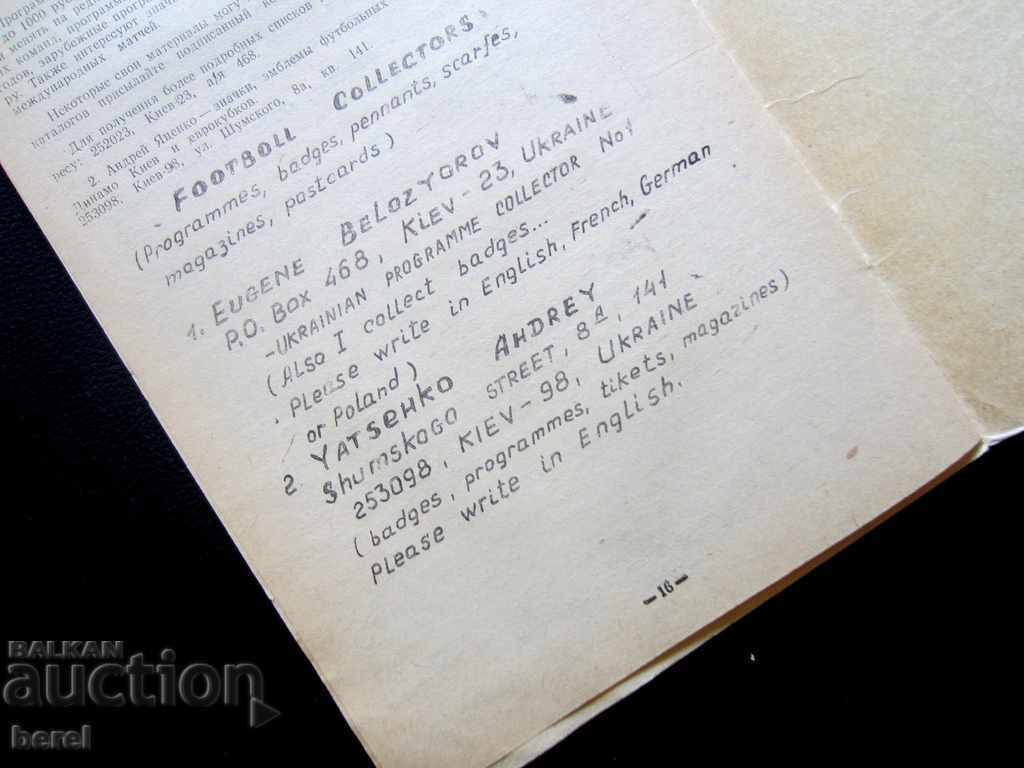 до 1600
менять на
их команд, программы
зарубежные
ру. Также интересуют
международных матчей.
Некоторые свои материалы могу
Для получения более подробных списков
каталогов присылайте подписанный
ресу: 252023, Киев-23, а/я 468.
2. Андрей Яценко — значки, эмблемы футбольных
Динамо Киев и еврокубков.
253098, Киев-98, ул. Шумского, 8а, кв. 141.
FOOTBOLL COLLECTORS
(Programmes, badges, pennants, scarfes,
magazines, postcards)
1. EUGENE BELOZYOROV
P.O. BOX 468, KIEV-23, UKRAINE
-UKRAINIAN PROGRAMME COLLECTOR No1
(Also I collect badges...
Please write in English, French, German
or Poland)
2 YATSEHKO AHDREY
Shumskogo STREET, 8a, 141
253098, KIEV-98, UKRAINE
(badges, programmes, tikets, magazines)
Please write in English.
—16—
BALKAN
auction
berel